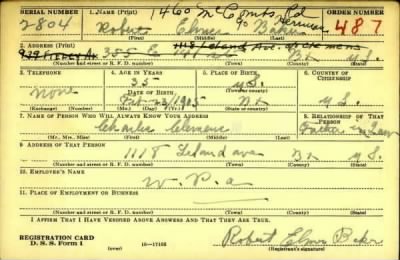 SERIAL NUMBER 1. NAME (Print) 460 McCombs Rd ORDER NUMBER
2804 Robert Elmer Baker 487
(First) (Middle) (Last)
2. ADDRESS (Print)
355 E Bx
(Number and street or R. F. D. number) (Town) (County) (State)
3. TELEPHONE 4. AGE IN YEARS 5. PLACE OF BIRTH 6. COUNTRY OF CITIZENSHIP
none 35
DATE OF BIRTH (Town or county)
23 1905
(Exchange) (Number) (Mo.) (Day) (Yr.) (State or country)
7. NAME OF PERSON WHO WILL ALWAYS KNOW YOUR ADDRESS 8. RELATIONSHIP OF THAT PERSON
Charles Clemens Father in Law
(Mr., Mrs., Miss) (First) (Middle) (Last)
9. ADDRESS OF THAT PERSON
1118 Leland ave Bx
(Number and street or R. F. D. number) (Town) (County) (State)
10. EMPLOYER'S NAME
W. P. a
11. PLACE OF EMPLOYMENT OR BUSINESS
(Number and street or R. F. D. number) (Town) (County) (State)
I AFFIRM THAT I HAVE VERIFIED ABOVE ANSWERS AND THAT THEY ARE TRUE.
REGISTRATION CARD
D. S. S. Form 1 (over) 16—17105 Robert Elmer Baker
(Registrant's signature)